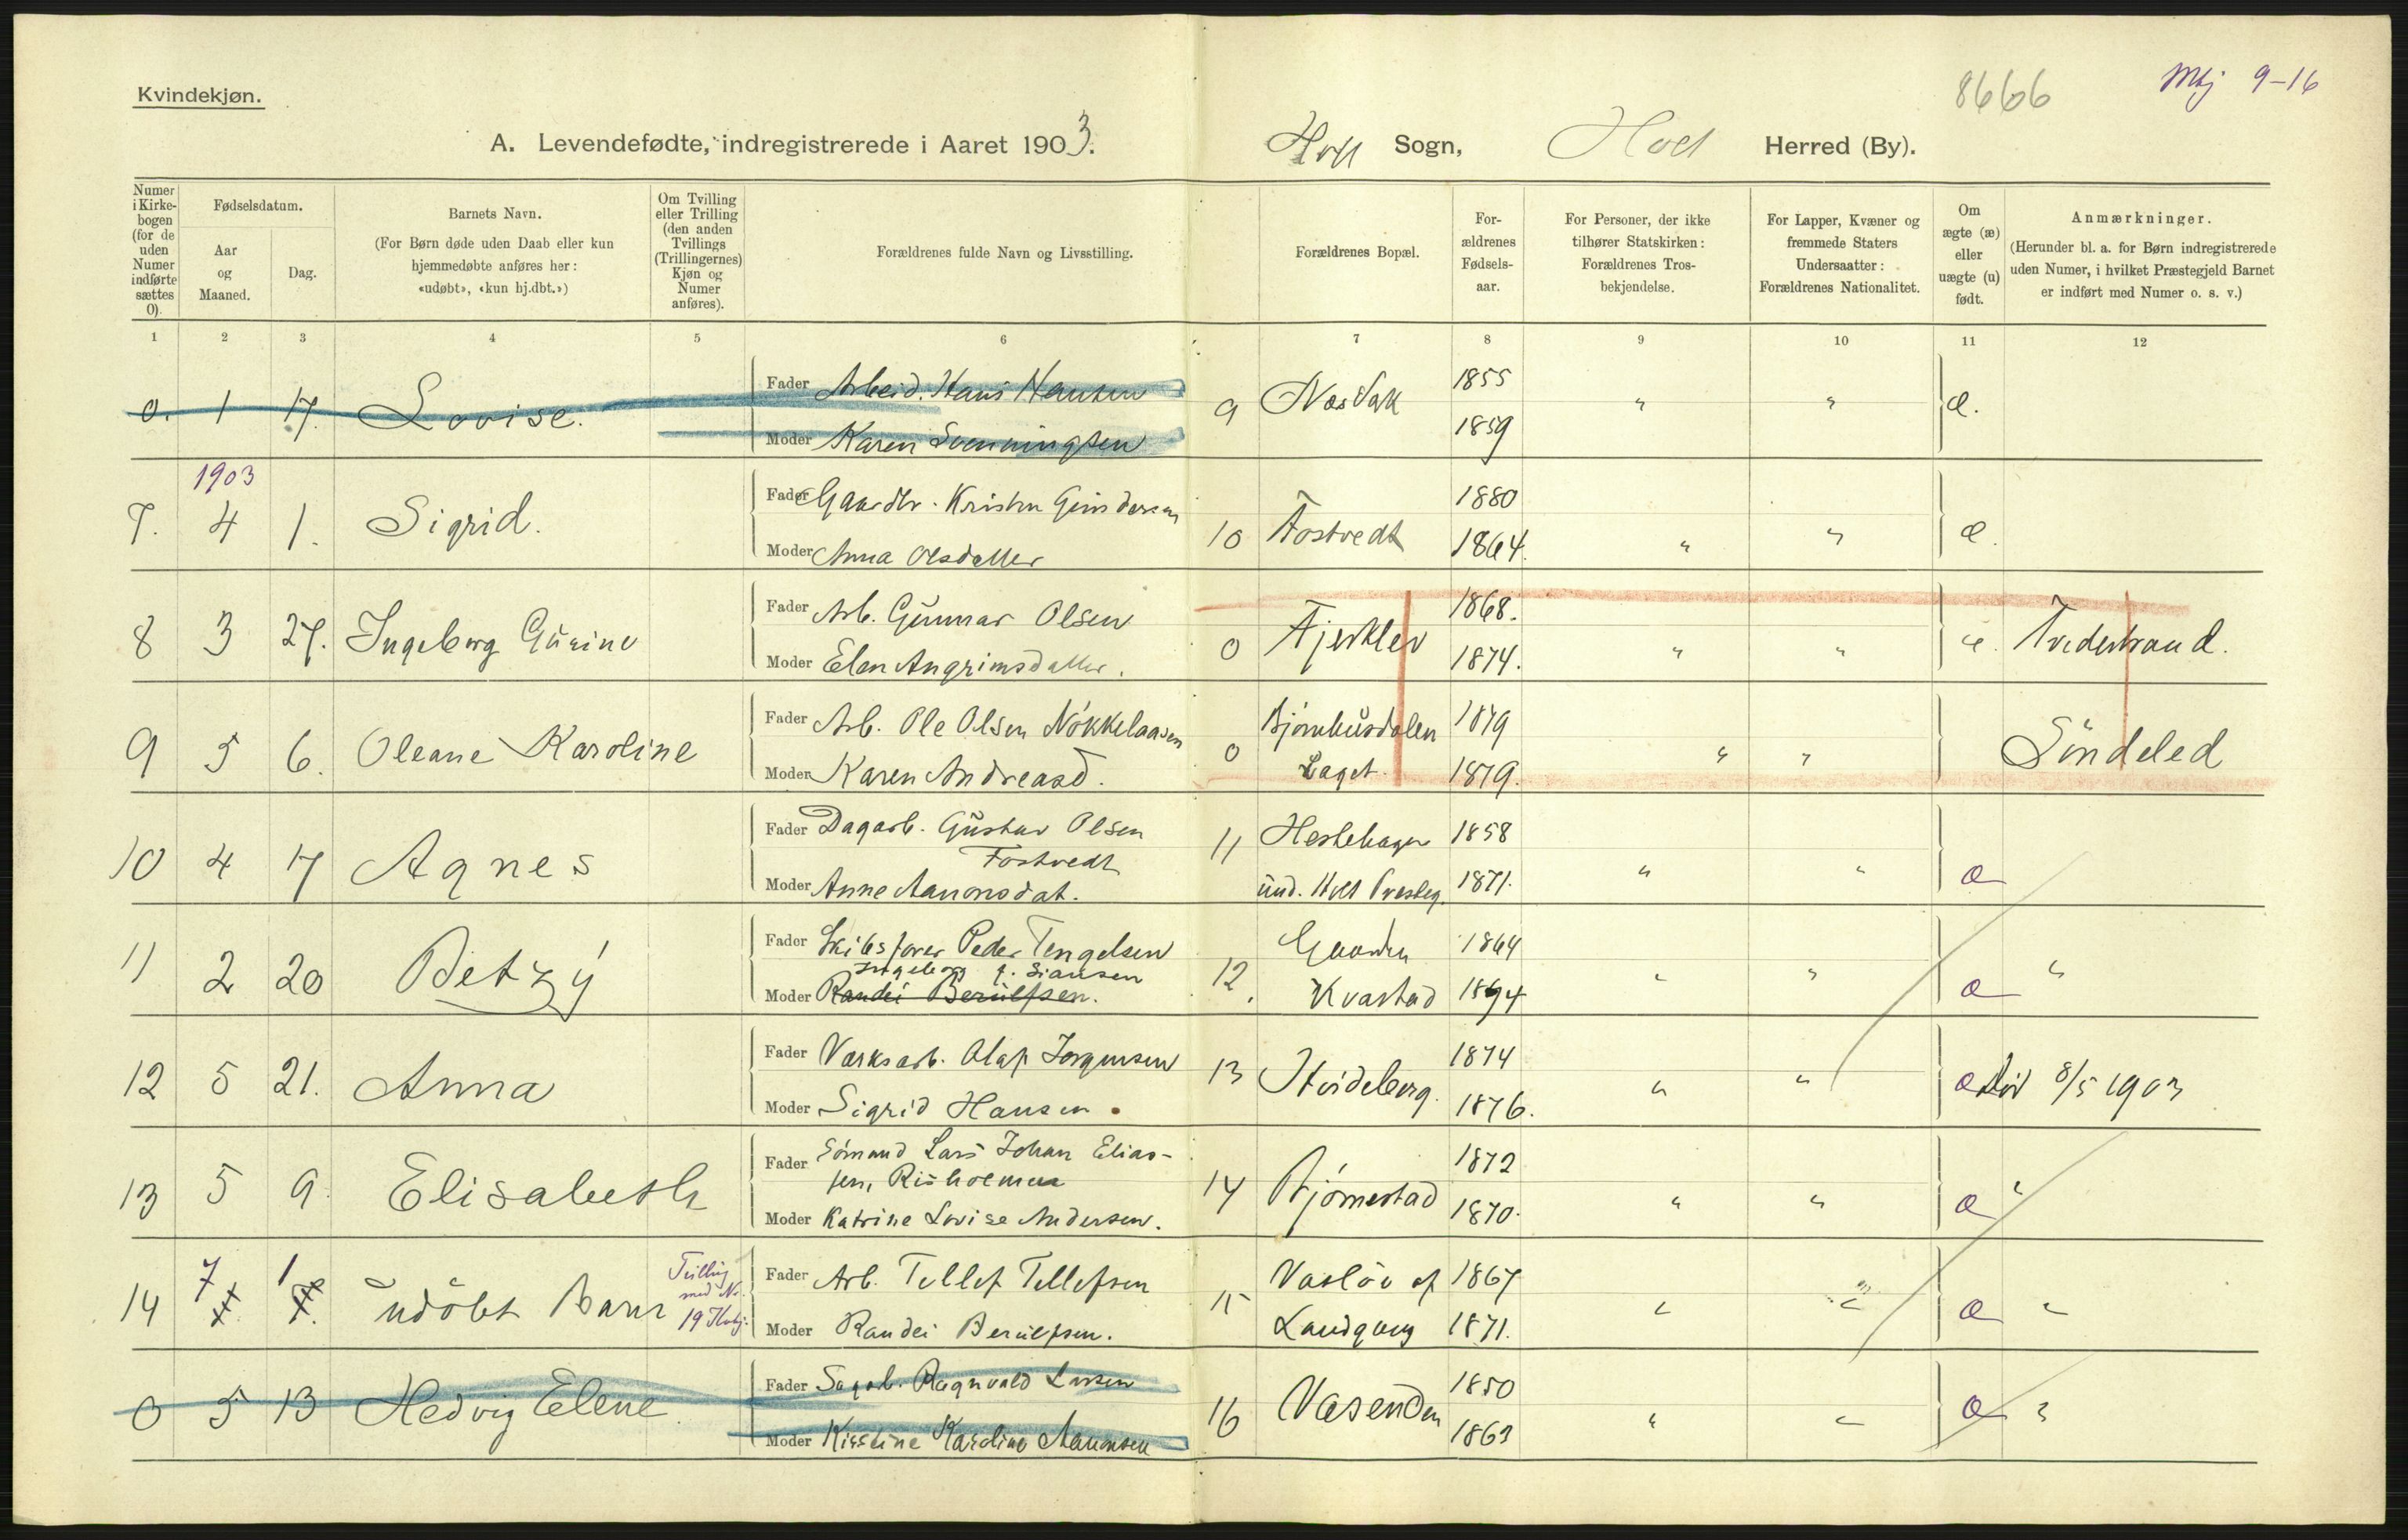 Kvindekjøn.
8666
9-16
A. Levendefødte, indregistrerede i Aaret 1903. Holt Sogn, Holt Herred (By).
Numer i Kirkebogen (for de uden Numer indførte sættes 0).
Fødselsdatum.
Aar og Maaned.
Dag.
Barnets Navn.
(For Børn døde uden Daab eller kun hjemmedøbte anføres her: «udøbt», «kun hj.dbt.»)
Om Tvilling eller Trilling (den anden Tvillings (Trillingernes) Kjøn og Numer anføres).
Forældrenes fulde Navn og Livsstilling.
Forældrenes Bopæl.
Forældrenes Fødselsaar.
For Personer, der ikke tilhører Statskirken: Forældrenes Trosbekjendelse.
For Lapper, Kvæner og fremmede Staters Undersaatter: Forældrenes Nationalitet.
Om ægte (æ) eller uægte (u) født.
Anmærkninger.
(Herunder bl. a. for Børn indregistrerede uden Numer, i hvilket Præstegjeld Barnet er indført med Numer o. s. v.)
1 2 3 4 5 6 7 8 9 10 11 12
0. 1 17. Lovise. Fader Arbeid. Hans Hansen 9 Næs Værk 1855 " " æ.
Moder Karen Svenningsen 1859
1903
7. 4 1. Sigrid. Fader Gaardbr. Kristen 10 Fostvedt 1880
Moder Anna Olsdatter 1864. " " æ.
8 3 27. Ingeborg Gurine Fader Arb. Gunnar Olsen 0 Fjerklev 1868. Tvedestrand.
Moder Elen Angrimsdatter. 1874. " "
9 5 6. Oleane Karoline Fader Arb. Ole Olsen Nökkelaasen 0 Bjørnhusdalen 1879 " " Søndeled
Moder Karen Andreasd. Laget 1879.
10 4 17 Agnes Fader Dagarb. Gustav Olsen 11 Hestehagen 1858
Fostvedt " " æ
Moder Anne Aanonsdat. und. Holt Presteg. 1871.
11 2 20 Betzy Fader Skibsfører Peder Tengelsen 12. Gaarden 1864
Ingeborg
Moder Randei Berulfsen. Kvastad 1894 " " æ "
12 5 21. Anna Fader Værksarb. Olaf Jørgensen 13 Hvideberg. 1874
Moder Sigrid Hansen. 1876. " " æ 8/5 1903
13 5 9. Elisabeth Fader Sömand Lars Johan Elias-
sen, Risholmen 14 Bjørnestad 1872
Moder Katrine Lovise Andersen. 1870. " " æ "
14 7 1 udöbt Barn Tvilling med No. 19 Fader Arb. Tellef Tellefsen 15 Vasløv af 1867
Moder Randei Berulfsen. Landgang 1871. " " æ "
0 5 13 Hedvig Elene. Fader Sagarb. Ragnvald Larsen 16 Væsenden 1850
Moder Kirstine Karoline Aanonsen 1863 " " æ "